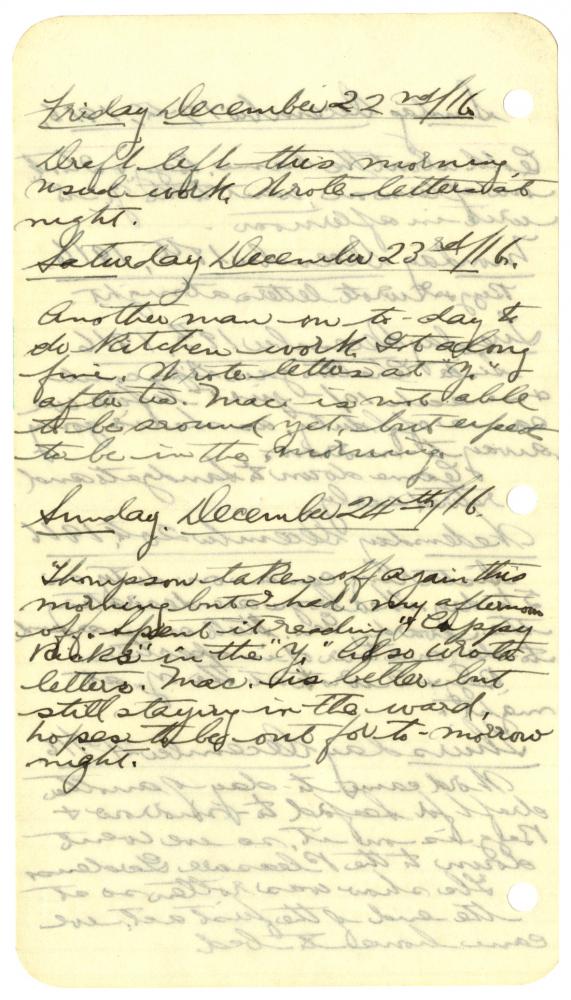 Friday December 22nd/16
Draft left this morning
usual work. Wrote letters at
night.
Saturday December 23rd/16.
Another man on to-day to
do kitchen work. Got along
fine. Wrote letters at "Y."
after tea. Mac. is not able
to be around yet, but expects
to be in the morning.
Sunday. December 24th/16.
Thompson taken off again this
morning but I had my afternoon
off. Spent it reading "Cappy
Ricks" in the "Y." Also wrote
letters. Mac. is better but
still staying in the ward,
hopes to be out for to-morrow
night.